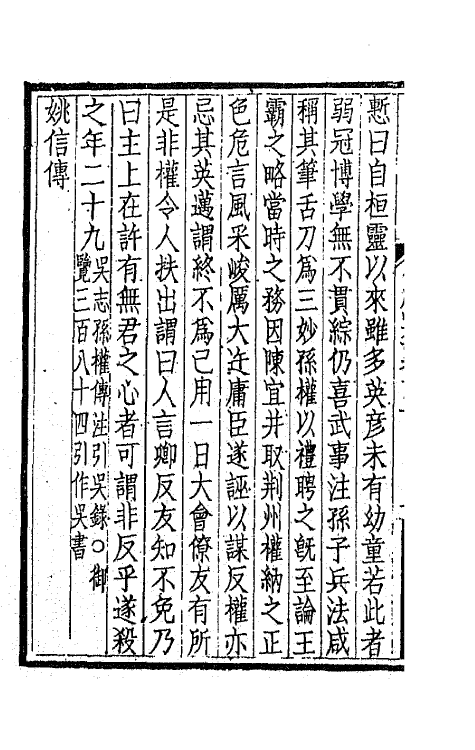 慙曰自桓靈以來雖多英彦未有幼童若此者
弱冠博學無不貫綜仍喜武事注孫子兵法咸
稱其筆舌刀爲三妙孫權以禮聘之旣至論王
霸之略當時之務因陳宜并取荆州權納之正
色危言風采峻厲大迕庸臣遂誣以謀反權亦
忌其英邁謂終不爲己用一日大會僚友有所
是非權令人扶出謂曰人言卿反友知不免乃
曰主上在許有無君之心者可謂非反乎遂殺
之年二十九吳志孫權傳注引吳錄○御
覽三百八十四引作吳書
姚信傳